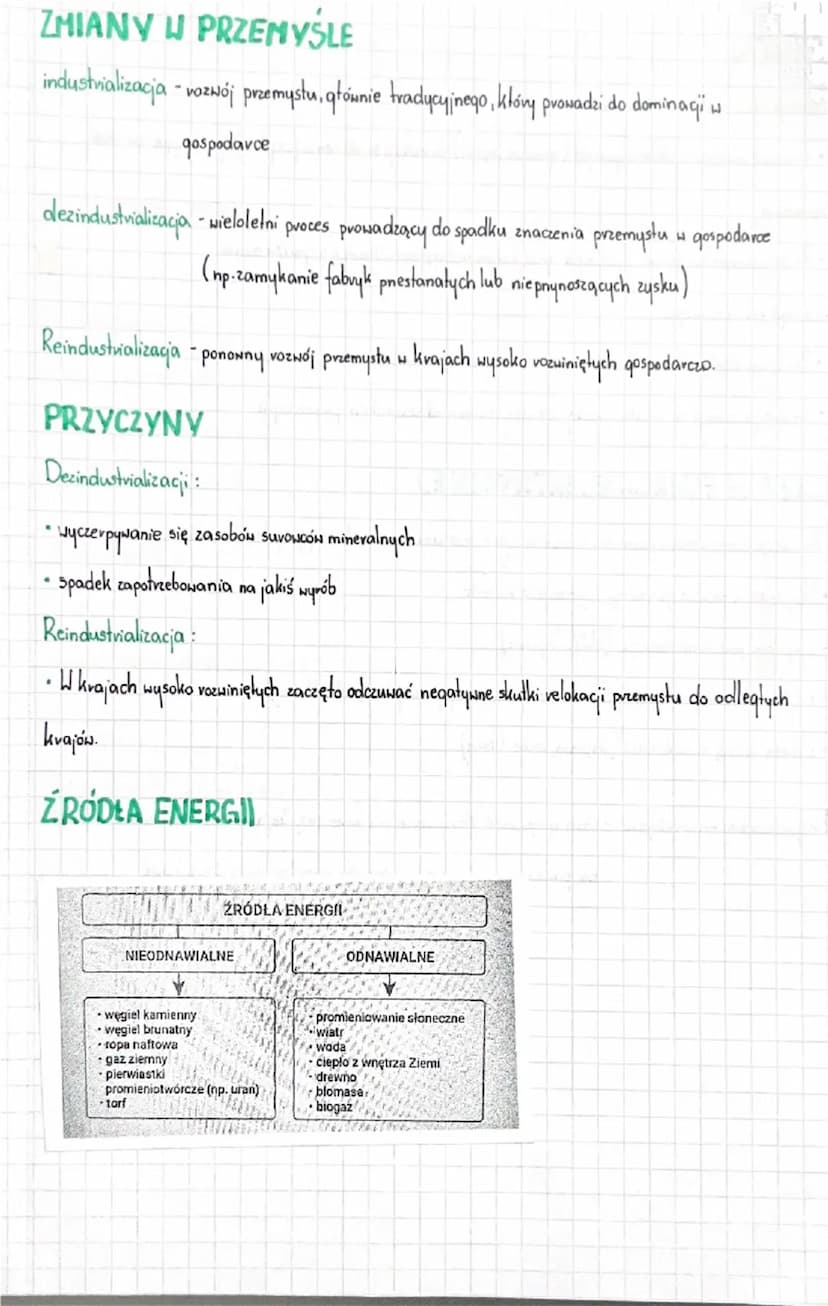 ZMIANY W PRZEMYŚLE
industrializacja - rozwój przemysłu, głównie tradycyjnego, który prowadzi do dominacji w
gospodarce
dezindustrializacja - wieloletni proces prowadzący do spadku znaczenia przemysłu w gospodarce
(np. zamykanie fabryk przestarzałych lub nie przynoszących zysku)
Reindustrializacja - ponowny rozwój przemysłu w krajach wysoko rozwiniętych gospodarczo.
PRZYCZYNY
Dezindustrializacji :
• wyczerpywanie się zasobów surowców mineralnych
• spadek zapotrzebowania na jakiś wyrób
Reindustrializacja :
• W krajach wysoko rozwiniętych zaczęto odczuwać negatywne skutki relokacji przemysłu do odległych
krajów.
ŹRÓDŁA ENERGII
ŹRÓDŁA ENERGII
NIEODNAWIALNE
• węgiel kamienny
• węgiel brunatny
• ropa naftowa
• gaz ziemny
• pierwiastki
promieniotwórcze (np. uran)
• torf
ODNAWIALNE
• promieniowanie słoneczne
• wiatr
• woda
• ciepło z wnętrza Ziemi
• drewno
• biomasa
• biogaz